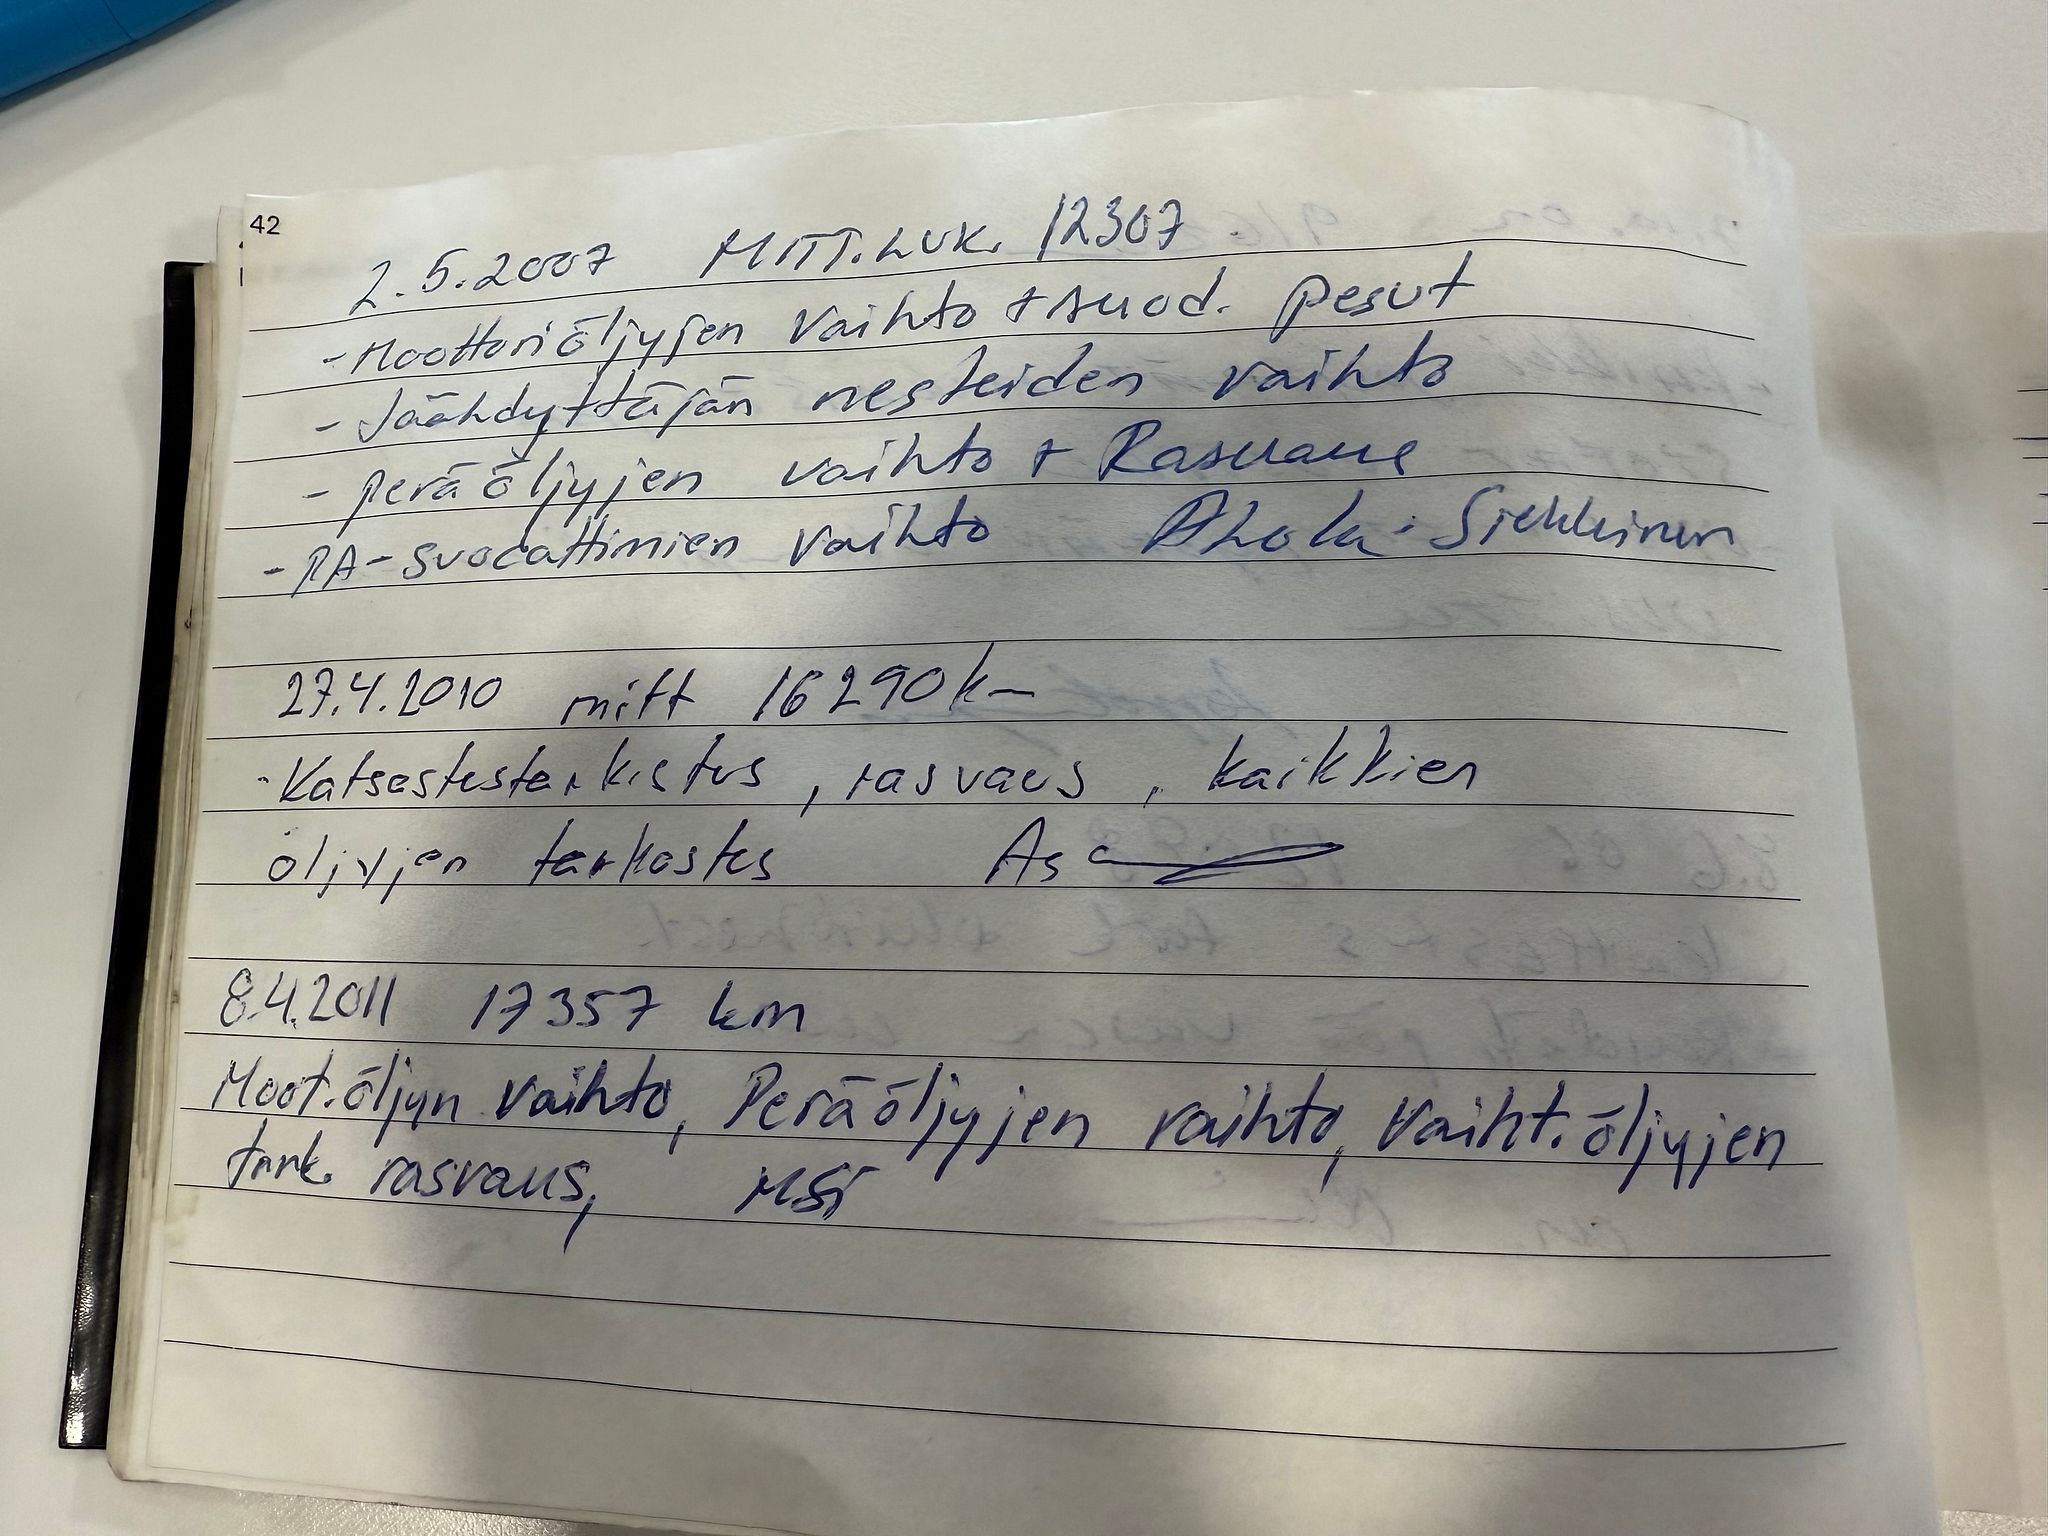 42
2.5.2007 MITT.LUK. 12307
- Moottoriöljyjen vaihto + suod. pesut
- Jäähdyttäjän nesteiden vaihto
- peräöljyjen vaihto + Rasvaus
- PA-suodattimien vaihto Ahola - Siekkinen
27.4.2010 mitt 16290 km
- Katsastustarkistus, rasvaus, kaikkien
öljyjen tarkastus As
8.4.2011 17357 km
Moot.öljyn vaihto, Peräöljyjen vaihto, Vaiht.öljyjen
tark. rasvaus, MSi